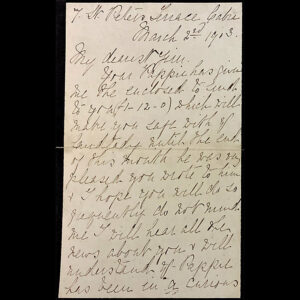 7. St. Peter's Terrace Cabra
March 2nd 1903.
My dearest Jim.
Your Pappie has given
me the enclosed to send
to you (£1-12-0) which will
make you safe with yr
landlady until the end
of this month he was very
pleased you wrote to him
& I hope you will do so
frequently do not mind
me I will hear all the
news about you & will
understand. yr Pappie
has been in a curious